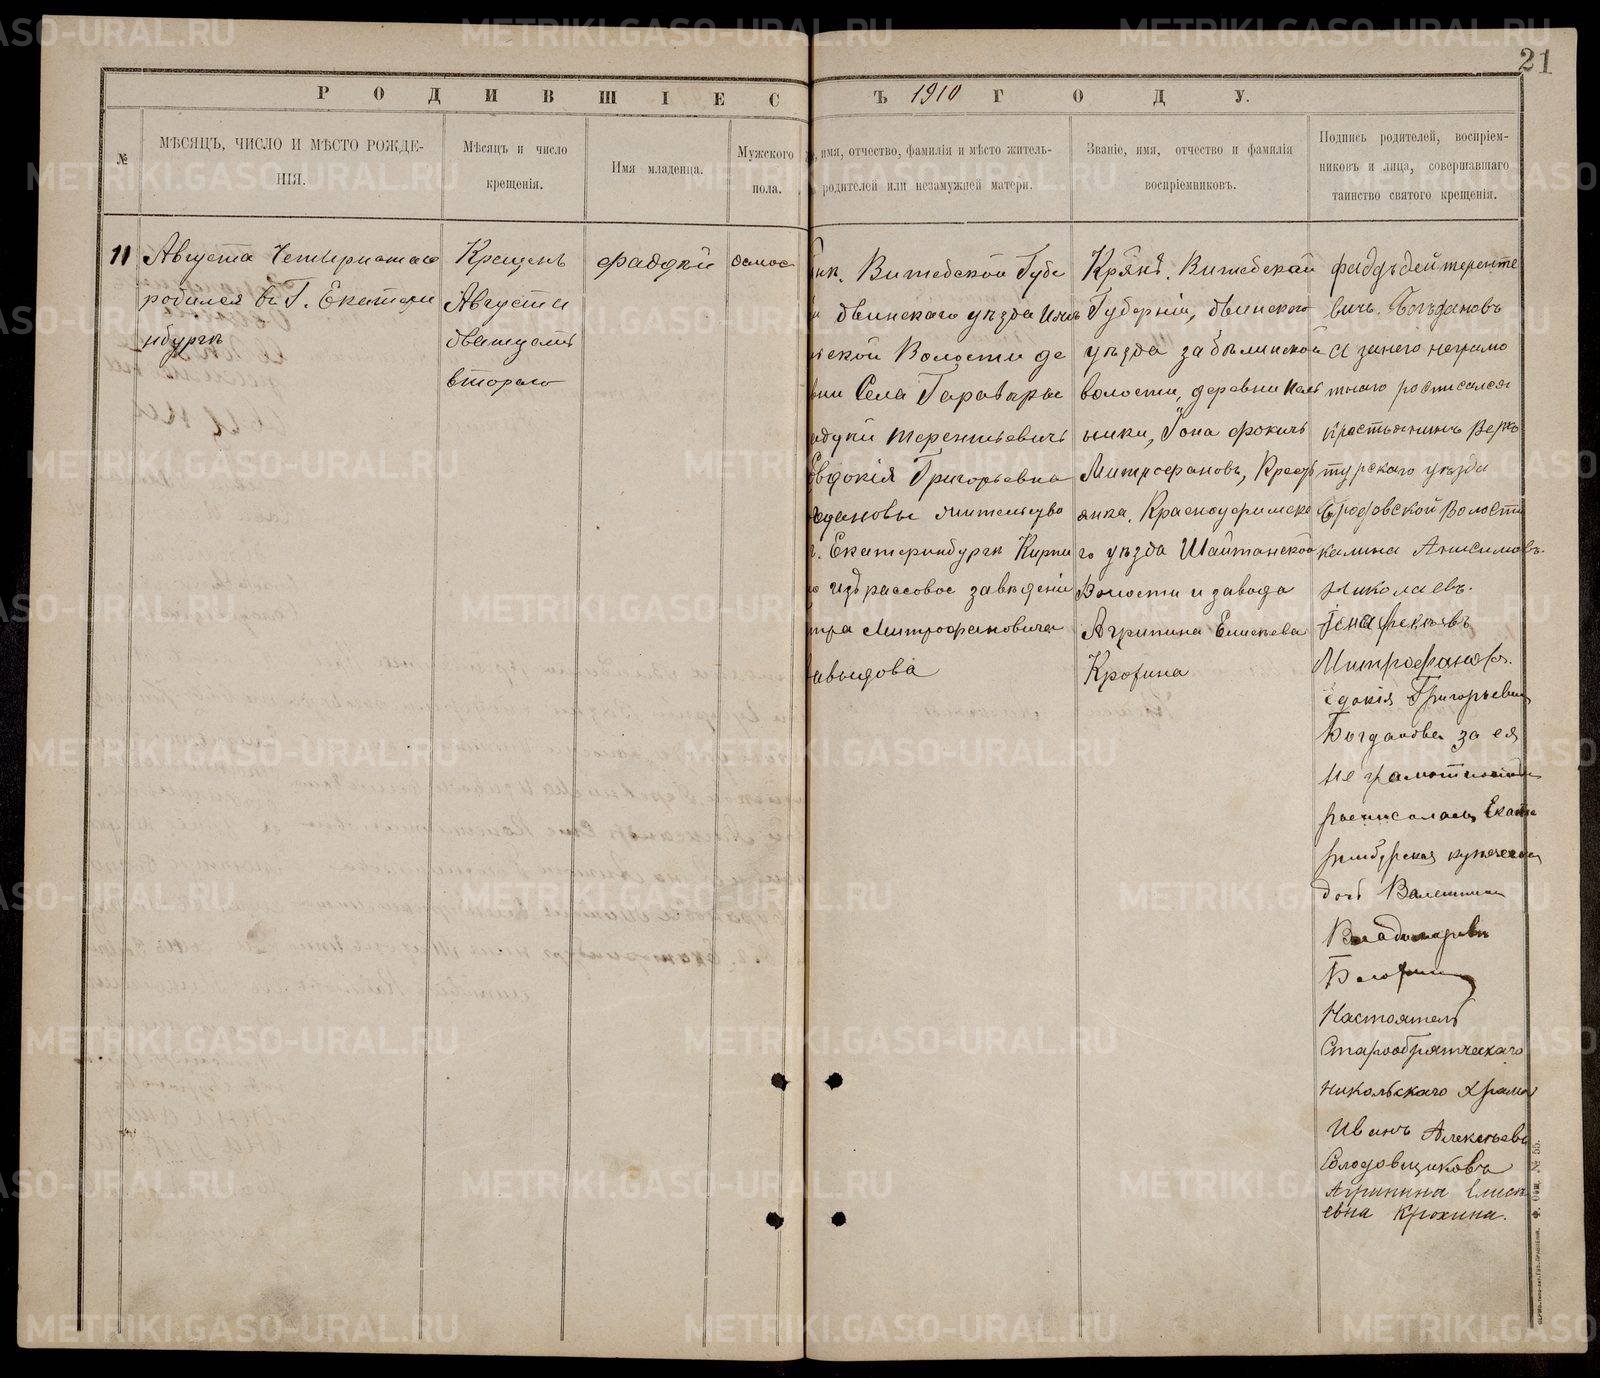 21
РОДИВШІЕС
Ъ 1910 ГОДУ.
№
МѢСЯЦЪ, ЧИСЛО И МѢСТО РОЖДЕ-
НІЯ.
Мѣсяцъ и число
крещенія.
Имя младенца.
Мужского
пола.
имя, отчество, фамилія и мѣсто житель-
родителей или незамужней матери.
Званіе, имя, отчество и фамилія
воспріемниковъ.
Подпись родителей, воспріем-
никовъ и лица, совершавшаго
таинство святого крещенія.
11
Августа Четырнатаго
родился въ Г. Екатери
нбургѣ
Крещенъ
Августа
дватцать
второго
Фаддѣй
Витебской Губе
двинскаго уѣзда
ской Волости де
Села Гаравцы
Терентьевичъ
Евдокія Григорьевна
дановы жительство
г. Екатеринбургѣ Кирпи
заведеніи
тра Митрофановича
авыдова
Крян. Витебской
Губерніи, двинского
уѣзда
волости, деревни
ники, Іона Фокичъ
Митрофановъ, Крест
янка. Красноуфимска
го уѣзда Шайтанской
Волости и завода
Агрипина Елисѣева
Крохина
Фаддѣй Теренте
вичъ. Богдановъ
а занего неграмо
тнаго росписался
крестьянинъ Верхо
турскаго уѣзда
Бродовской Волости
калина Анисимовъ.
Николаевъ.
Іона Фокѣевъ
Митрофановъ.
Едокія Григорьевна
Богданова за ея
не грамотностью
росписалась Екате
ринбурская купеческая
дочь Валентина
Владимировна
Настоятель
Старообрятческаго
никольскаго храма
Иванъ Алексѣевъ
Солодовщиковъ
Агрипина Елисѣ
евна Крохина.
METRIKI.GASO-URAL.RU